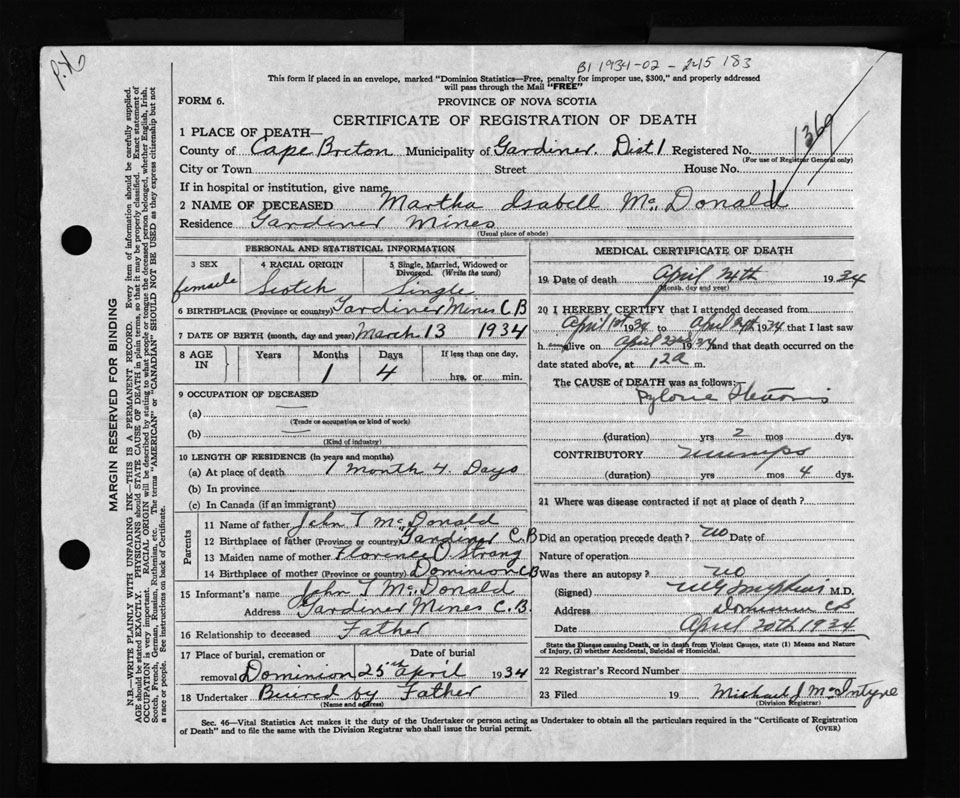 P.X.
B1 1934-02-245 183
This form if placed in an envelope, marked "Dominion Statistics—Free, penalty for improper use, $300," and properly addressed
will pass through the Mail "FREE"
FORM 6.
PROVINCE OF NOVA SCOTIA
CERTIFICATE OF REGISTRATION OF DEATH
1369
1 PLACE OF DEATH—
County of Cape Breton Municipality of Gardiner. Dist 1 Registered No.
(For use of Registrar General only)
City or Town Street House No.
If in hospital or institution, give name
2 NAME OF DECEASED Martha Isabell Mc Donald
Residence Gardiner Mines
(Usual place of abode)
PERSONAL AND STATISTICAL INFORMATION
3 SEX 4 RACIAL ORIGIN 5 Single, Married, Widowed or Divorced. (Write the word)
female Scotch Single
6 BIRTHPLACE (Province or country) Gardiner Mines C B
7 DATE OF BIRTH (month, day and year) March 13 1934
8 AGE IN Years Months Days If less than one day,
1 4 hrs. or min.
9 OCCUPATION OF DECEASED
(a) —
(Trade or occupation or kind of work)
(b) —
(Kind of industry)
10 LENGTH OF RESIDENCE (In years and months)
(a) At place of death 1 month 4. Days
(b) In province
(c) In Canada (if an immigrant)
Parents
11 Name of father John T McDonald
12 Birthplace of father (Province or country) Gardiner C.B
13 Maiden name of mother Florence O. Strang
14 Birthplace of mother (Province or country) Dominion CB
15 Informant's name John T McDonald
Address Gardiner Mines C.B.
16 Relationship to deceased Father
17 Place of burial, cremation or removal Date of burial
Dominion 25 April 1934
18 Undertaker Buired by Father
(Name and address)
MEDICAL CERTIFICATE OF DEATH
19 Date of death April 24th 1934
(Month, day and year)
20 I HEREBY CERTIFY that I attended deceased from
April 1st 1934 to April 24th 1934 that I last saw
h er alive on April 22nd 1934 and that death occurred on the
date stated above, at 12 a m.
The CAUSE of DEATH was as follows:
Pyloric Stenosis
(duration) yrs 2 mos dys.
CONTRIBUTORY Mumps
(duration) yrs mos 4 dys.
21 Where was disease contracted if not at place of death?
Did an operation precede death? no Date of
Nature of operation
Was there an autopsy? no
(Signed) M.D.
Address Dominion CB
Date April 20th 1934
State the Disease causing Death, or in death from Violent Causes, state (1) Means and Nature
of Injury, (2) whether Accidental, Suicidal or Homicidal.
22 Registrar's Record Number
23 Filed 19 Michael J McIntyre
(Division Registrar)
Sec. 46—Vital Statistics Act makes it the duty of the Undertaker or person acting as Undertaker to obtain all the particulars required in the "Certificate of Registration
of Death" and to file the same with the Division Registrar who shall issue the burial permit.
(OVER)
MARGIN RESERVED FOR BINDING
N.B.—WRITE PLAINLY WITH UNFADING INK—THIS IS A PERMANENT RECORD. Every item of information should be carefully supplied.
AGE should be stated EXACTLY. PHYSICIANS should STATE CAUSE OF DEATH in plain terms, so that it may be properly classified. Exact statement of
OCCUPATION is very important. RACIAL ORIGIN will be described by stating to what people or tongue the deceased person belonged, whether English, Irish,
Scotch, French, German, Russian, Ruthenian, etc. The terms "AMERICAN" or "CANADIAN" SHOULD NOT BE USED as they express citizenship but not
a race or people. See instructions on back of Certificate.